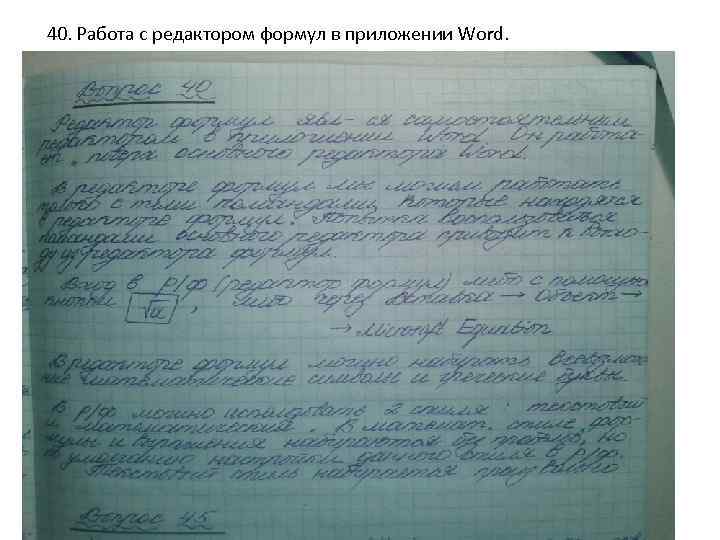 40. Работа с редактором формул в приложении Word.
Вопрос 40
Редактор формул явл-ся самостоятельным
редактором в приложении Word. Он работа-
ет поверх основного редактора Word.
В редакторе формул мы можем работать
только с теми командами, которые находятся
в редакторе формул. Попытка воспользоваться
командами основного редактора приводит к выхо-
ду из редактора формул.
Вход в р/ф (редактор формул) либо с помощью
кнопки √α , либо через Вставка → Объект →
→ Microsoft Equation
В редакторе формул можно набирать всевозмож-
ные математические символы и греческие буквы.
В р/ф можно использовать 2 стиля: текстовый
и математический. В математ. стиле фор-
мулы и выражения набираются без но
по умолчанию настройки данного стиля в р/ф.
Текстовый стиль набирается произвольно
Вопрос 45